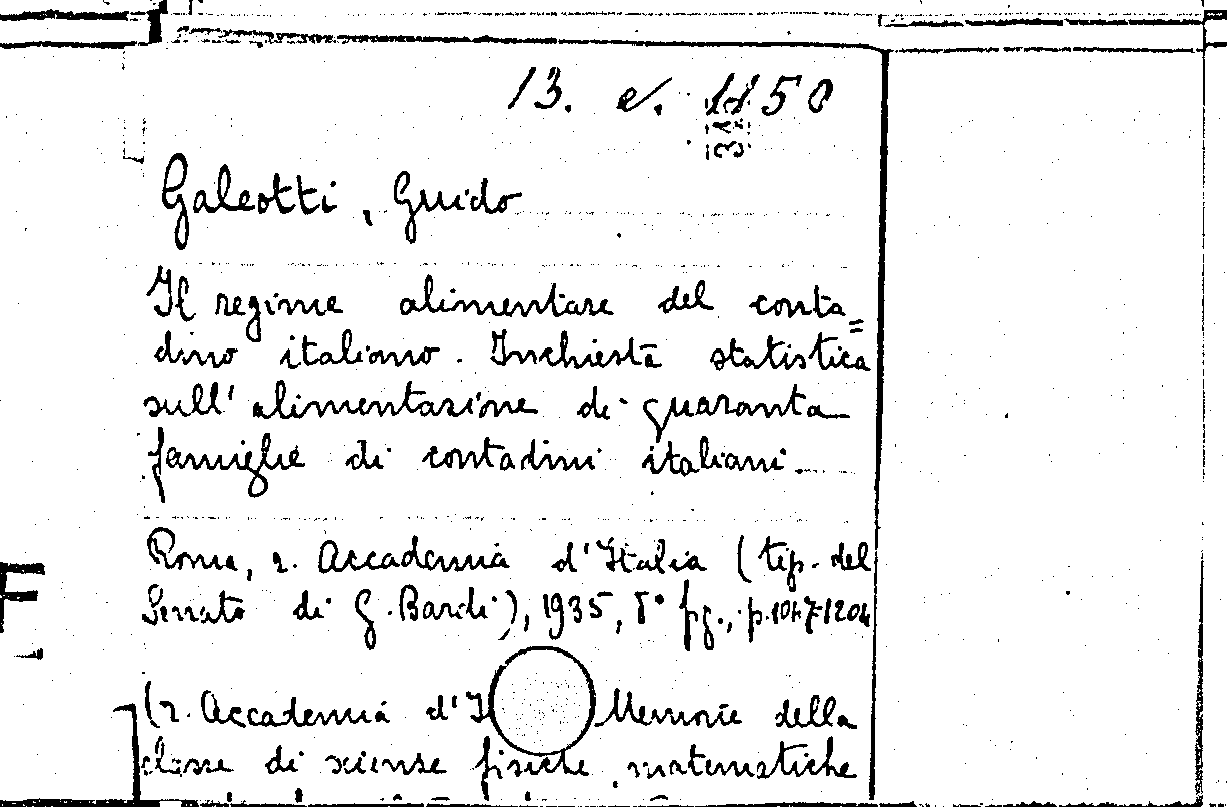 13. e. 1150
Galeotti, Guido
Il regime alimentare del conta=
dino italiano. Inchiesta statistica
sull'alimentazione di quaranta
famiglie di contadini italiani.
Roma, r. Accademia d'Italia (tip. del
Senato di G. Bardi), 1935, 8° fig., p. 1047-1204
(r. Accademia d'I Memorie della
classe di scienze fisiche matematiche
F